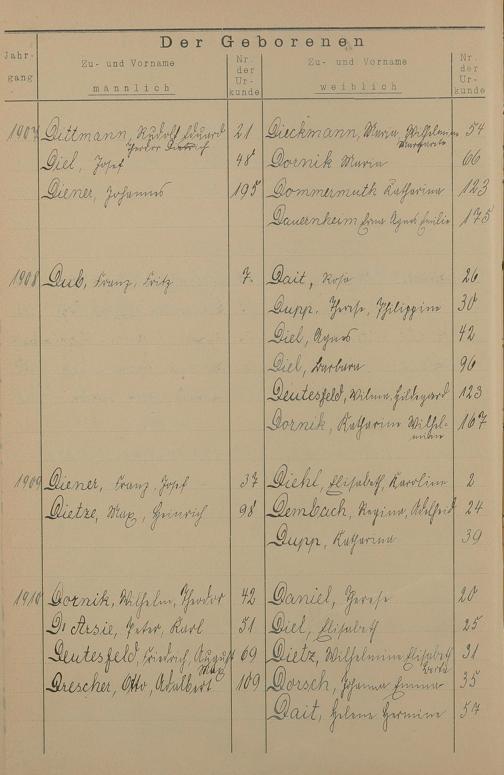 Der Geborenen
Jahr-
gang
Zu- und Vorname
männlich
Nr.
der
Ur-
kunde
Zu- und Vorname
weiblich
Nr.
der
Ur-
kunde
1907 Dittmann, Rudolf Eduard 21 Dieckmann, Maria Wilhelmine 54
Theodor Dietrich Margareta
Diel, Josef 48 Dornik Maria 66
Diener, Johannes 195 Dommermuth Katharina 123
Dauernheim, Erna Agnes Emilie 175
1908 Dub, Franz, Fritz 7 Dait, Rosa 26
Dupp, Therese, Philippine 30
Diel, Agnes 42
Diel, Barbara 96
Deutesfeld, Wilma, Hildegard 123
Dornik, Katharina Wilhel- 167
mine
1909 Diener, Franz, Josef 37 Diehl, Elisabeth, Karoline 2
Dietze, Max, Heinrich 98 Dembach, Regina, Adelheid 24
Dupp, Katharina 39
1910 Dornik, Wilhelm, Theodor 42 Daniel, Therese 20
D'Arsie, Peter, Karl 51 Diel, Elisabeth 25
Deutesfeld, Friedrich, August 69 Dietz, Wilhelmine Elisabeth 31
Max Berta
Drescher, Otto, Adalbert 109 Dorsch, Johanna Emma 35
Dait, Helene Hermine 57